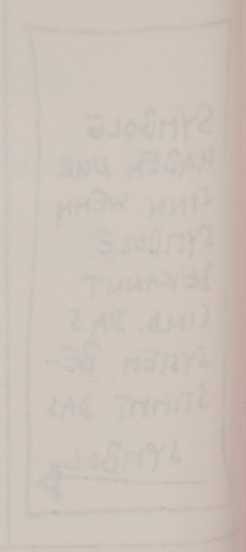 SYMBOLE
HABEN NUR
SINN WENN
SYMBOLE
BEKANNT
SIND. DAS
SYSTEM BE-
STIMMT DAS
SYMBOL